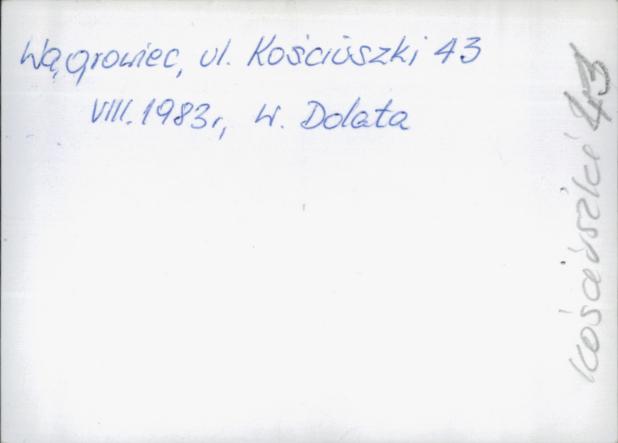 Wągrowiec, ul. Kościuszki 43
VIII.1983r, W. Dolata
Kościuszki 43